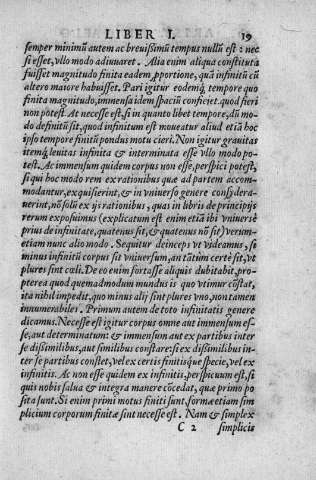 LIBER I. 19
semper minimũ autem ac breuissimũ tempus nullũ est: nec
si esset, vllo modo adiuuaret. Alia enim aliqua constituta
fuisset magnitudo finita eadem proportione, quã infinitũ cũ
altero maiore habuisset. Pari igitur eodemq́; tempore quo
finita magnitudo, immensa idem spaciũ conficiet. quod fieri
non potest. At necesse est, si in quanto libet tempore, dũ mo-
do definitũ sit, quod infinitum est moueatur aliud etiã hoc
ipso tempore finitũ pondus motu cieri. Non igitur grauitas
itemq́; leuitas infinita & interminata esse vllo modo po-
test. Ac immensum quidem corpus non esse, perspici potest,
si qui hoc modo rem ex rationibus quæ ad partem accom-
modantur, exquisierint, & in vniuerso genere considera-
uerint, nõ solũ ex ijs rationibus, quas in libris de principijs
rerum exposuimus (explicatum est enim etiã ibi vniuersè
prius de infinitate, quatenus sit, & quatenus nõ sit) verum-
etiam nunc alio modo. Sequitur deinceps vt videamus, si
minus infinitũ corpus sit vniuersum, an tãtum certè sit, vt
plures sint cæli. De eo enim fortasse aliquis dubitabit, pro-
pterea quod quemadmodum mundus is quo vtimur cõstat,
ita nihil impedit, quo minus alij sint plures vno, non tamen
innumerabiles. Primum autem de toto infinitatis genere
dicamus. Necesse est igitur corpus omne aut immensum es-
se, aut determinatum: & immensum aut ex partibus inter
se dissimilibus, aut similibus constare: si ex dissimilibus in-
ter se partibus constet, vel ex certis finitisque specie, vel ex
infinitis. Ac non esse quidem ex infinitis, perspicuum est, si
quis nobis salua & integra manere cõcedat, quæ primo po
sita sunt. Si enim primi motus finiti sunt, formæ etiam sim
plicium corporum finitæ sint necesse est. Nam & simplex
C 2 simplicis